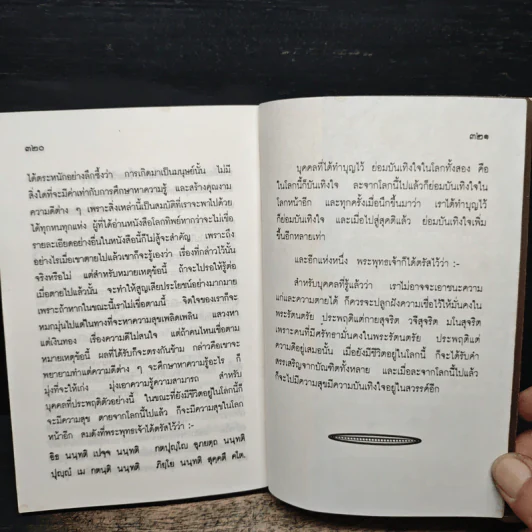 ๓๒๐
ได้ตระหนักอย่างลึกซึ้งว่า การเกิดมาเป็นมนุษย์นั้น ไม่มี
สิ่งใดที่จะมีค่าเท่ากับการศึกษาหาความรู้ และสร้างคุณงาม
ความดีต่าง ๆ เพราะสิ่งเหล่านี้เป็นสมบัติที่เราจะพาไปด้วย
ได้ทุกหนทุกแห่ง ผู้ที่ได้อ่านหนังสือโลกทิพย์หากว่าจะไม่เชื่อ
รายละเอียดอย่างอื่นในหนังสือนี้ก็ไม่สู้จะสำคัญ เพราะถึง
อย่างไรเมื่อเขาตายไปแล้วเขาก็จะรู้เองว่า เรื่องที่กล่าวไว้นั้น
จริงหรือไม่ แต่สำหรับหมายเหตุข้อนี้ ถ้าจะไปรอให้รู้ต่อ
เมื่อตายไปแล้วนั้น จะทำให้สูญเสียประโยชน์อย่างมากมาย
เพราะถ้าหากในขณะนี้เราไม่เชื่อตามนี้ จิตใจของเราก็จะ
หมกมุ่นไปแต่ในทางที่จะหาความสุขเพลิดเพลิน แสวงหา
แต่เงินทอง เรื่องความดีไม่สนใจ แต่ถ้าคนไหนเชื่อตาม
หมายเหตุข้อนี้ ผลที่ได้รับก็จะตรงกันข้าม กล่าวคือเขาจะ
พยายามทำแต่ความดีต่าง ๆ จะศึกษาหาความรู้อะไร ก็
มุ่งที่จะให้เก่ง มุ่งเอาความรู้ความสามารถ สำหรับ
บุคคลที่ประพฤติตัวอย่างนี้ ในขณะที่ยังมีชีวิตอยู่ในโลกนี้ก็
จะมีความสุข ตายจากโลกนี้ไปแล้ว ก็จะมีความสุขในโลก
หน้าอีก สมดังที่พระพุทธเจ้าได้ตรัสไว้ว่า :-
อิธ นนฺทติ เปจฺจ นนฺทติ กตปุญฺโญ อุภยตฺถ นนฺทติ
ปุญฺญํ เม กตนฺติ นนฺทติ ภิยฺโย นนฺทติ สุคฺคตึ คโต.
๓๒๑
บุคคลที่ได้ทำบุญไว้ ย่อมบันเทิงใจในโลกทั้งสอง คือ
ในโลกนี้ก็บันเทิงใจ ละจากโลกนี้ไปแล้วก็ย่อมบันเทิงใจใน
โลกหน้าอีก และทุกครั้งเมื่อนึกขึ้นมาว่า เราได้ทำบุญไว้
ก็ย่อมบันเทิงใจ และเมื่อไปสู่สุคติแล้ว ย่อมบันเทิงใจเพิ่ม
ขึ้นอีกหลายเท่า
และอีกแห่งหนึ่ง พระพุทธเจ้าก็ได้ตรัสไว้ว่า :-
สำหรับบุคคลที่รู้แล้วว่า เราไม่อาจจะเอาชนะความ
แก่และความตายได้ ก็ควรจะปลูกฝังความเชื่อไว้ให้มั่นคงใน
พระรัตนตรัย ประพฤติแต่กายสุจริต วจีสุจริต มโนสุจริต
เพราะคนที่มีศรัทธามั่นคงในพระรัตนตรัย ประพฤติแต่
ความดีอยู่เสมอนั้น เมื่อยังมีชีวิตอยู่ในโลกนี้ ก็จะได้รับคำ
สรรเสริญจากบัณฑิตทั้งหลาย และเมื่อละจากโลกนี้ไปแล้ว
ก็จะไปมีความสุขมีความบันเทิงใจอยู่ในสวรรค์อีก